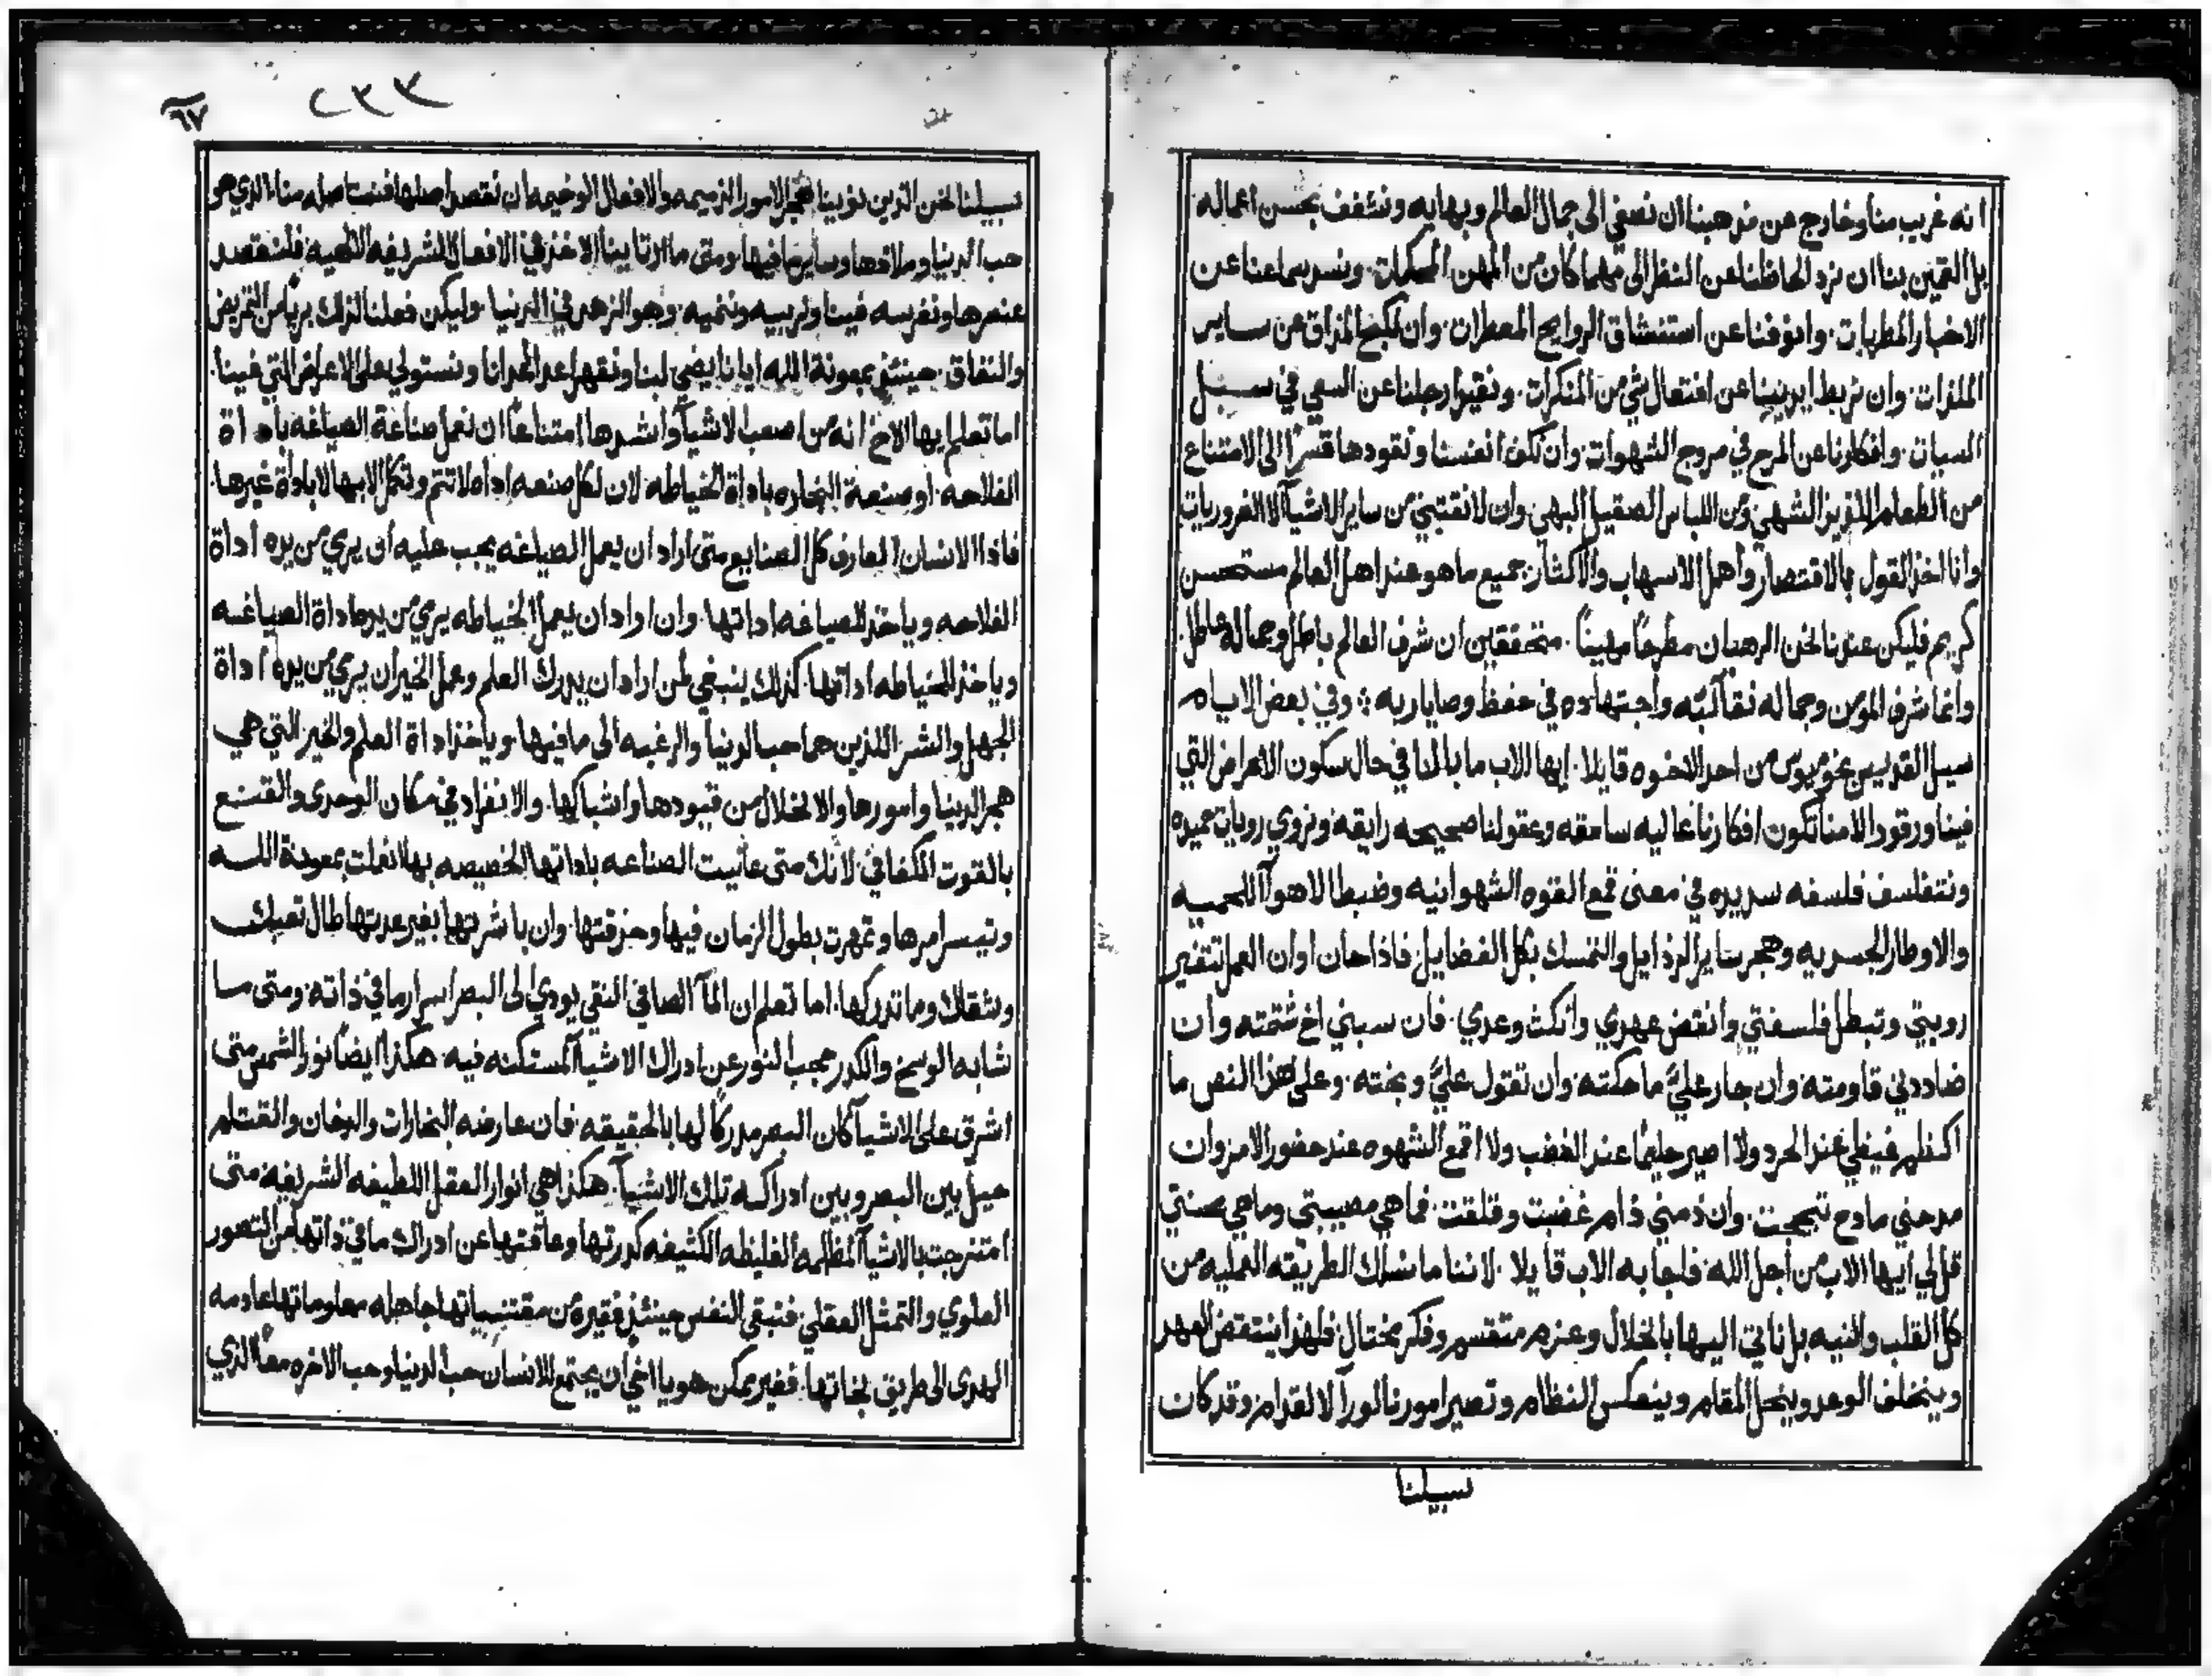 انه غريب منا وخارج عن مذهبنا ان نصغي الى جمال العالم وبهايه ونشغف بحسن اعماله
بل القمين بنا ان نرد الحاظنا عن النظر الى مهما كان من المهن ونسد سماعنا عن
الاخبار المطربات وانوفنا عن استنشاق الروايح المعطرات وان نكبح المذاق عن ساير
الملذات وان نربط ايدينا عن افتعال شي من المنكرات ونقيد ارجلنا عن السعي في سبل
السيات وافكارنا عن المرح في مروج الشهوات وان نكف انفسنا ونقودها قسرًا الى الامتناع
من الطعام اللذيذ الشهي ومن اللباس الصقيل البهي وان لا نقتني من ساير الاشيآ الا الضروريات
وانا اخذ القول بالاقتصار واهمل الاسهاب والاكثار جميع ما هو عند اهل العالم مستحسن
كريم فليكن عندنا نحن الرهبان مطرحًا مهينًا متحققين ان شرف العالم باطل وجماله عاطل
وانما شرف المومن وجماله نقآ نيته واجتهاده في حفظ وصايا ربه وفي بعض الايام
سيل القديس من احد الاخوه قايلا ايها الاب ما بالنا في حال سكون الامراض التي
فينا ورقود الامنا تكون افكارنا عاليه سامقه وعقولنا صحيحه رايقه ونروي رويات حميده
ونتفلسف فلسفه سديده في معنى قمع القوه الشهوانيه وضبط الاهوآ اللحميه
والاوطار الجسديه وهجر ساير الرذايل والتمسك بكل الفضايل فاذا حان اوان العمل تتغير
رويتي وتبطل فلسفتي وانقض عهدي وانكث وعدي فان سبني اخ شتمته وان
ضاددني قاومته وان جار عليَّ ماحكته وان تقول عليَّ وبخته وعلى هذا النص ما
اكظم غيظي عند الحرد ولا اصير حليمًا عند الغضب ولا اقمع الشهوه عند حضور الامر وان
مدحني مادح تبجحت وان ذمني ذام غضبت وقلقت فما هي مصيبتي وما هي
قل لي ايها الاب من اجل الله فاجابه الاب قايلا لاننا ما نسلك الطريقه العمليه من
كل القلب والنيه بل ناتي اليها بانحلال وعزم منقسم وفكر مختال فلهذا ينتقض العهد
ويتخلف الوعد وينحل المقام وينعكس النظام وتصير امورنا لورآ لا لقدام وقد كان
سبيلنا
٦٧
٣٣٢
سبيلنا نحن الذين نوينا هجر الامور الذميمه والافعال الوخيمه ان نقصد اصلها الذي هو
حب الدنيا وملاذها وساير ما فيها ومتى ما ارتاينا الاخذ في الافعال الشريفه الالهيه فلنقصد
عنصرها ونغرسه فينا ونربيه وننميه وهو الزهد في الدنيا وليكن فعلنا لذلك بريًا من
والنفاق حينئذ بمعونة الله ايانا يضي لبنا ونقهر اعدانا ونستولي على الاعراض التي فينا
اما تعلم ايها الاخ انه من اصعب الاشيآ واشدها امتناعًا ان نعمل صناعة الصياغه باداة
الفلاحه او صنعة النجاره باداة الخياطه لان لكل صنعه اداه لا تتم وتكمل الا بها لا باداة غيرها
فاذا الانسان العارف كل الصنايع متى اراد ان يعمل الصياغه يجب عليه ان يرمي من يده اداة
الفلاحه وياخذ للصياغه اداتها وان اراد ان يعمل الخياطه يرمي من يده اداة الصياغه
وياخذ للخياطه اداتها كذلك ينبغي لمن اراد ان يدرك العلم وعمل الخير ان يرمي من يده اداة
الجهل والشر اللذين هما حب الدنيا والرغبه الى ما فيها وياخذ اداة العلم والخير التي هي
هجر الدنيا وامورها والانحلال من قيودها واشباكها والانفراد في مكان الوحدى والقنع
بالقوت الكفافي لانك متى عانيت الصناعه باداتها الخصيصه بها بمعونة الله
وتيسر امرها وتمهرت بطول الزمان فيها وحذقتها وان باشرتها بغير عدتها طال تعبك
وشقاك وما تدركها اما تعلم ان المآ الصافي النقي يودي الى البصر اسرار ما في ذاته ومتى ما
شابه الوسخ والكدر حجب النور عن ادراك الاشيآ المستكنه فيه هكذا ايضًا نور الشمس متى
اشرق على الاشيآ كان البصر مدركًا لها بالحقيقه فان عارضه البخارات والدخان والقتام
حيل بين البصر وبين ادراكه تلك الاشيآ هكذا هي انوار العقل اللطيفه الشريفه متى
امتزجت بالاشيآ المظلمه الغليظه الكثيفه كدرتها وعاقتها عن ادراك ما في ذاتها من التصور
العلوي والتمثل العقلي فتبقى النفس حينئذ فقيره من مقتنياتها جاهله معلوماتها عادمه
الهدى الى طريق نجاتها فغير ممكن هو يا اخي ان يجتمع للانسان حب الدنيا وحب الاخره معًا الذي